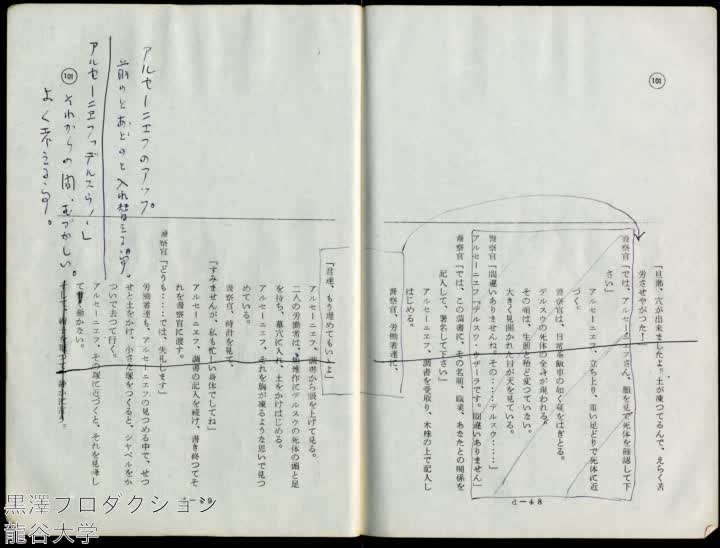 101
「旦那、穴が出来ましたよ。土が凍つてるんで、えらく苦
労させやがつた！」
警察官「では、アルセーニエフさん、顔を見て死体を確認して下
さい」
アルセーニエフ、立ち上り、重い足どりで死体に近
づく。
警察官は、日常茶飯事の如く莚をはぎとる。
デルスウの死体の全身が現われる。
その顔は、生前と殆ど変つていない。
大きく見開かれた目が天を見ている。
警察官「間違いありませんね、その‥‥デルスウ‥‥」
アルセーニエフ「デルスウ・ウザーラです。間違いありません」
警察官「では、この調書に、その名前、職業、あなたとの関係を
記入して、署名して下さい」
アルセーニエフ、調書を受取り、木株の上で記入し
はじめる。
警察官、労働者達に、
d－48
「君達、もう埋めてもいゝよ」
アルセーニエフ、調書から顔を上げて見る。
二人の労働者は、無雑作にデルスウの死体の頭と足
を持ち、墓穴に入れ、土をかけはじめる。
アルセーニエフ、それを胸が凍るような思いで見つ
めている。
警察官、時計を見て、
「すみませんが、私も忙しい身体でしてね」
アルセーニエフ、調書の記入を続け、書き終つてそ
れを警察官に渡す。
警察官「どうも‥‥では、失礼します」
労働者達も、アルセーニエフの見つめる中で、せつ
せと土をかけ、小さな塚をつくると、シャベルをか
ついで去つて行く。
アルセーニエフ、その塚に近づくと、それを見下し
て 動かない。
アルセーニエフのアップ。
前のとあとのと入れ替える事。
アルセーニエフ「デルスウ！」
101
それからの間、むづかしい。
よく考える事。
黒澤プロダクション
龍谷大学